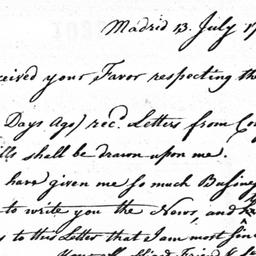 Madrid 13. July 17
ceived your Favor respecting the
Days Ago) rec.d Letters from Con
ills shall be drawn upon me.
have given me so much Busines
to write you the News, and
s to this Letter that I am most sin